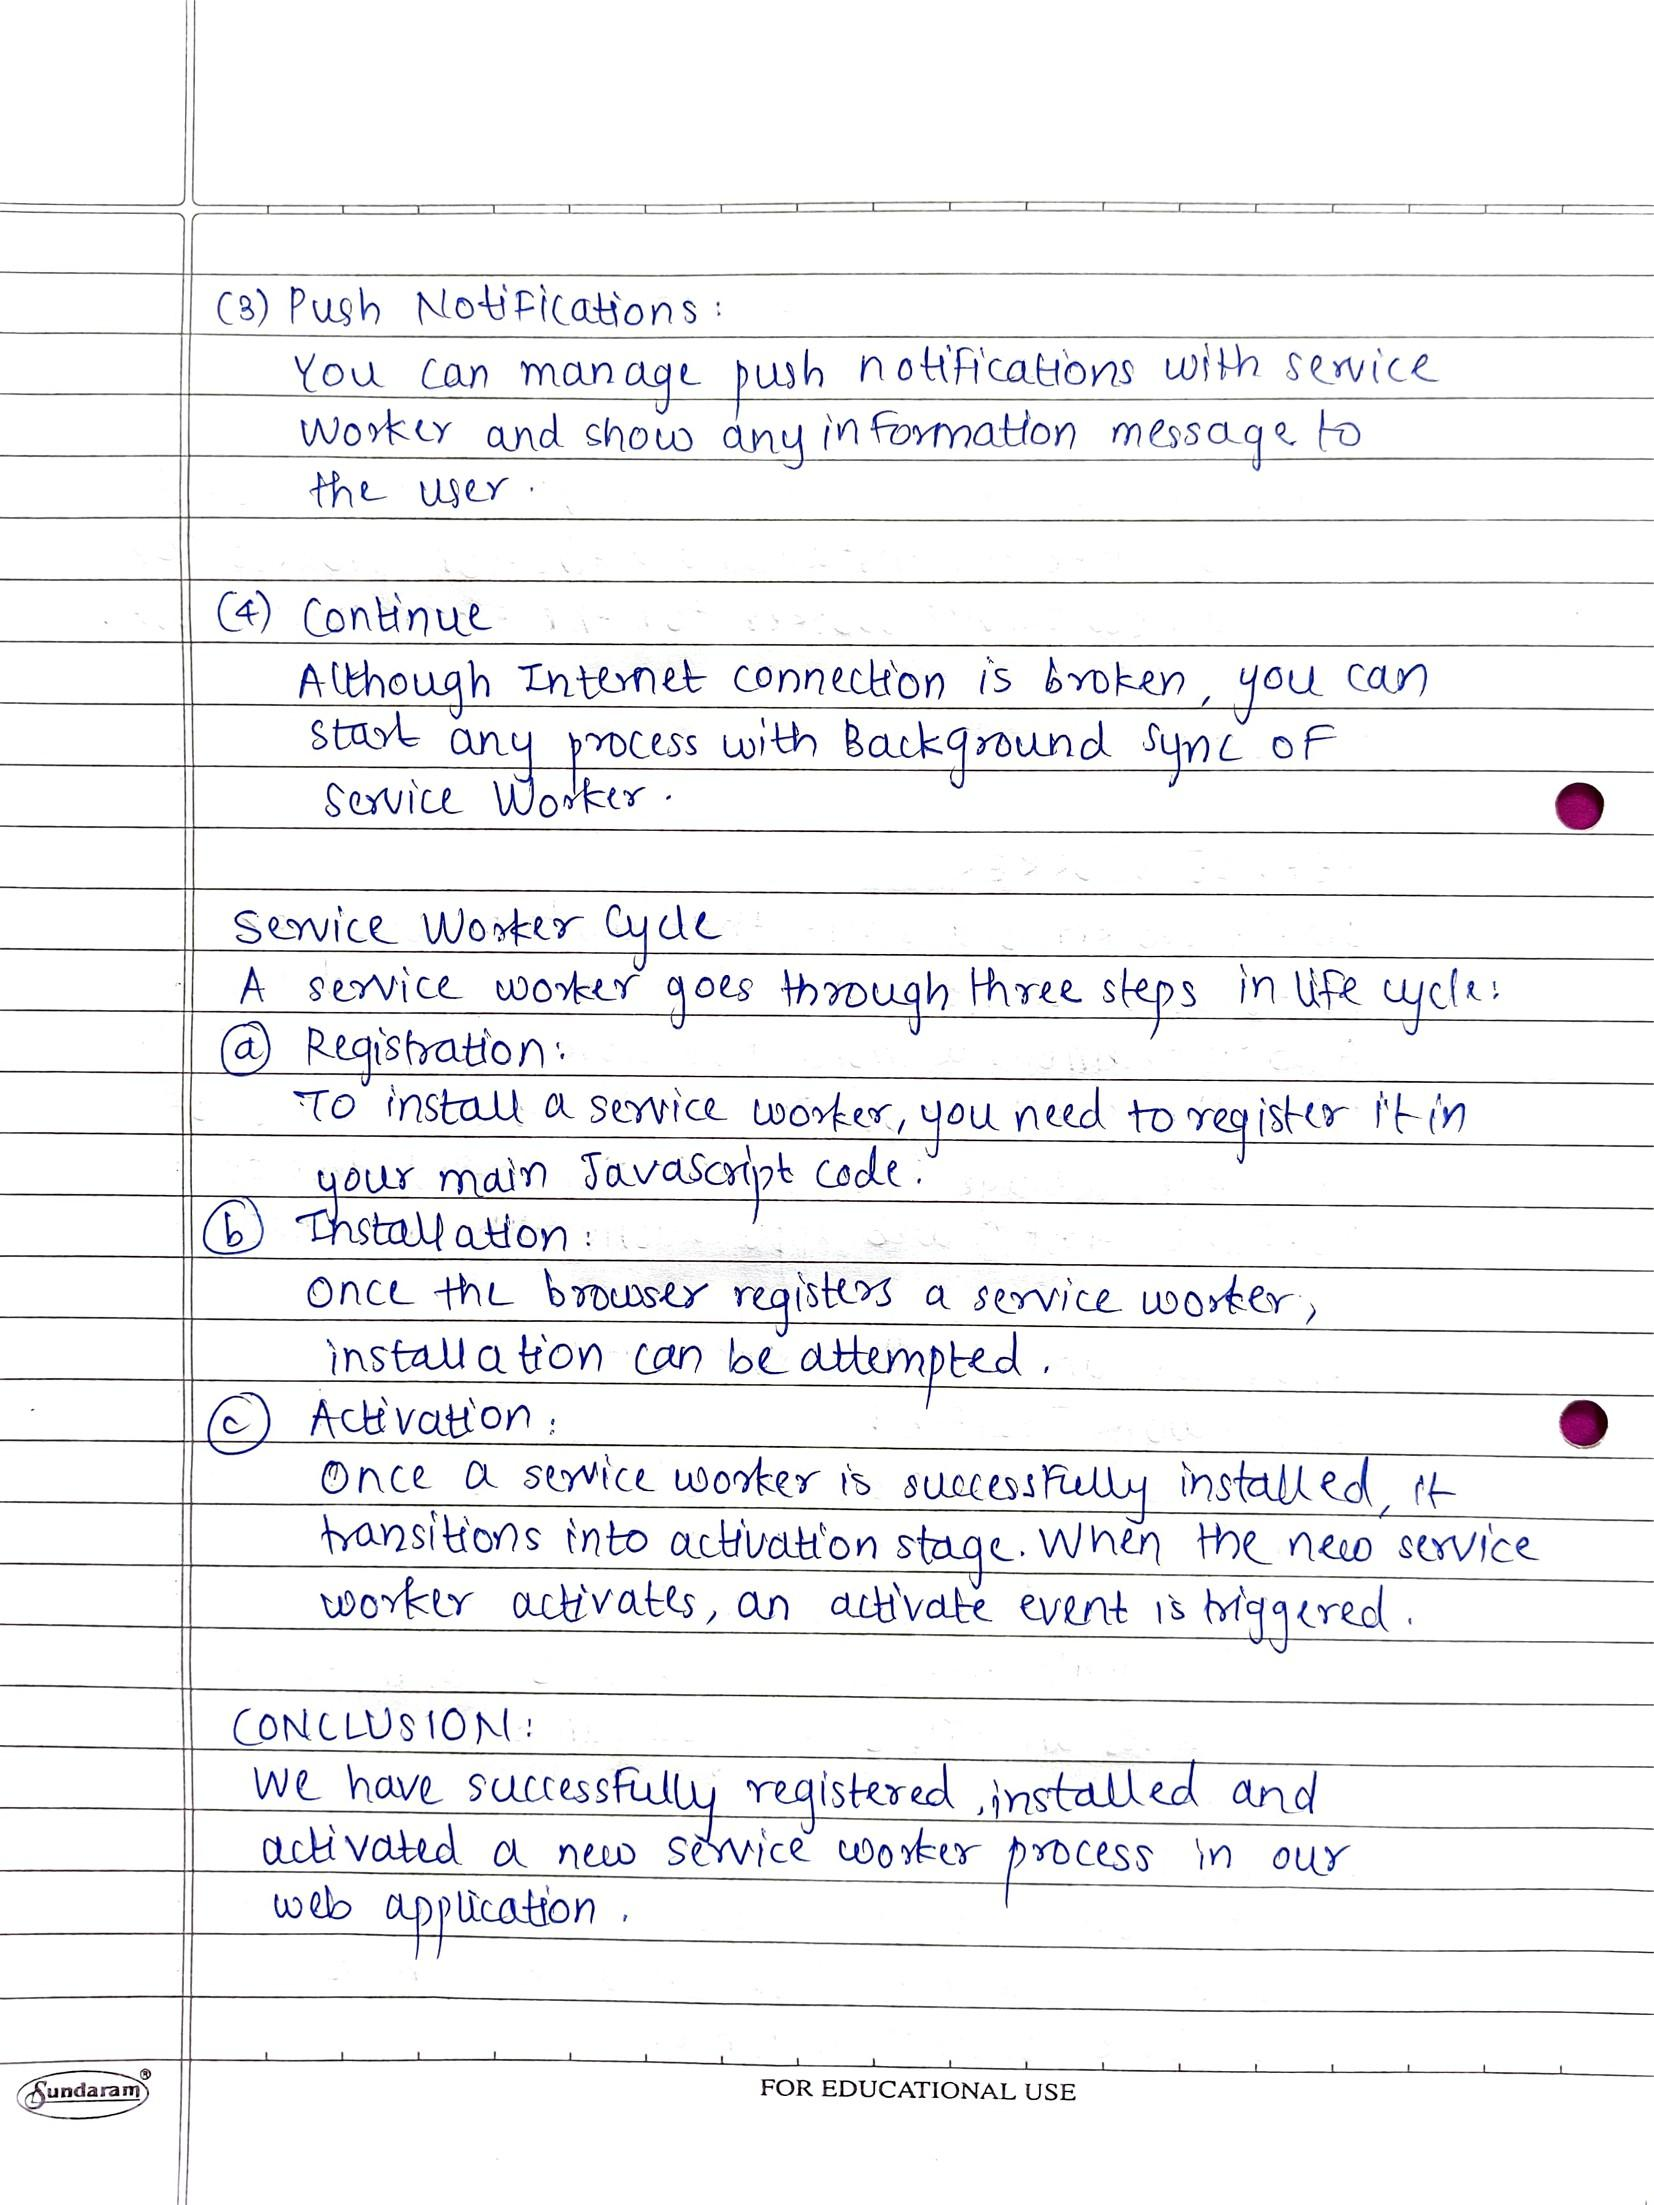 (3) Push Notifications:
You can manage push notifications with service
Worker and show any information message to
the user.
(4) Continue
Although Internet connection is broken, you can
start any process with Background Sync of
Service Worker.
Service Worker Cycle
A service worker goes through three steps in life cycle:
(a) Registration:
To install a service worker, you need to register it in
your main Javascript code.
(b) Installation:
Once the browser registers a service worker,
installation can be attempted.
(c) Activation:
Once a service worker is successfully installed, it
transitions into activation stage. When the new service
worker activates, an activate event is triggered.
CONCLUSION:
We have successfully registered, installed and
activated a new service worker process in our
web application.
Sundaram®
FOR EDUCATIONAL USE